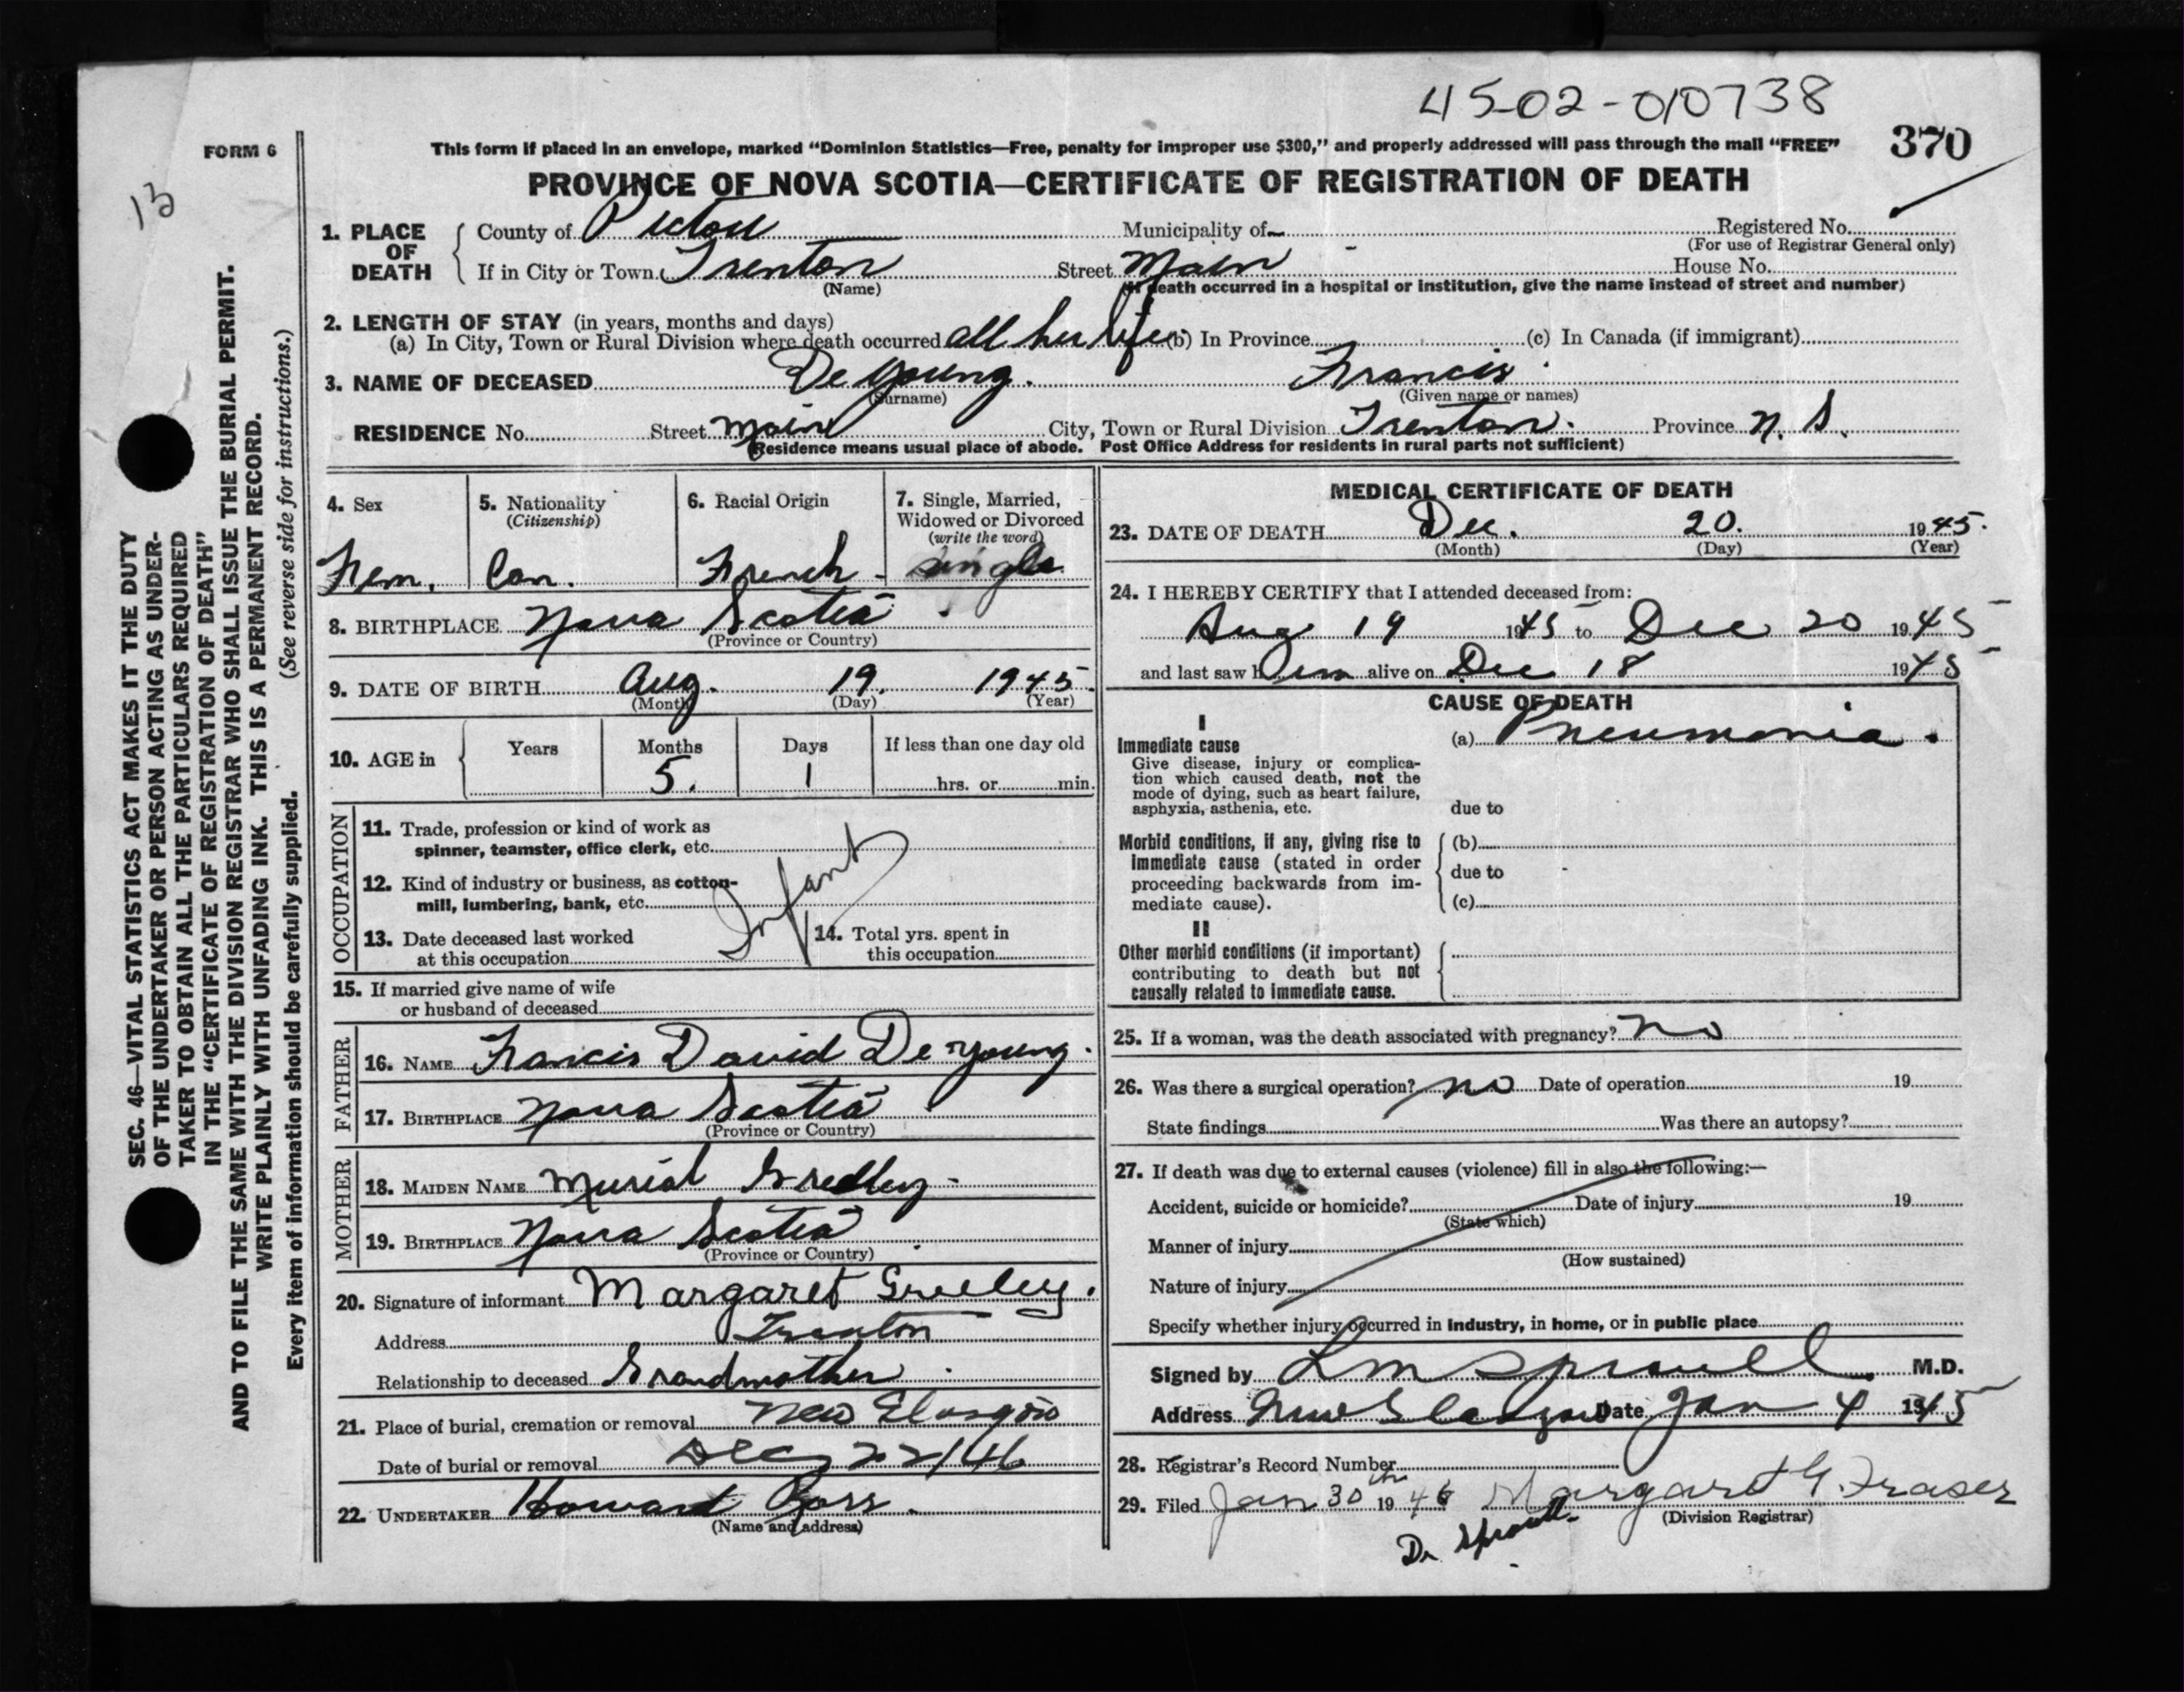 4502-010738
FORM 6
This form if placed in an envelope, marked "Dominion Statistics—Free, penalty for improper use $300," and properly addressed will pass through the mail "FREE"
370
13
PROVINCE OF NOVA SCOTIA—CERTIFICATE OF REGISTRATION OF DEATH
1. PLACE OF DEATH
County of Pictou Municipality of Registered No.
(For use of Registrar General only)
If in City or Town Trenton Street Main House No.
(Name) (If death occurred in a hospital or institution, give the name instead of street and number)
2. LENGTH OF STAY (in years, months and days)
(a) In City, Town or Rural Division where death occurred all her life (b) In Province (c) In Canada (if immigrant)
3. NAME OF DECEASED De Young. Francis
(Surname) (Given name or names)
RESIDENCE No. Street Main City, Town or Rural Division Trenton. Province N. S.
(Residence means usual place of abode. Post Office Address for residents in rural parts not sufficient)
4. Sex
Fem.
5. Nationality
(Citizenship)
Can.
6. Racial Origin
French
7. Single, Married,
Widowed or Divorced
(write the word)
single
8. BIRTHPLACE Nova Scotia
(Province or Country)
9. DATE OF BIRTH Aug. 19. 1945.
(Month) (Day) (Year)
10. AGE in
Years Months Days If less than one day old
5. 1 hrs. or min.
OCCUPATION
11. Trade, profession or kind of work as
spinner, teamster, office clerk, etc.
12. Kind of industry or business, as cotton-
mill, lumbering, bank, etc.
Infant
13. Date deceased last worked
at this occupation
14. Total yrs. spent in
this occupation
15. If married give name of wife
or husband of deceased
FATHER
16. NAME Francis David De Young.
17. BIRTHPLACE Nova Scotia
(Province or Country)
MOTHER
18. MAIDEN NAME
19. BIRTHPLACE Nova Scotia
(Province or Country)
20. Signature of informant Margaret Greeley.
Address Trenton
Relationship to deceased Grandmother
21. Place of burial, cremation or removal New Glasgow
Date of burial or removal Dec 22/46
22. UNDERTAKER Howard Ross.
(Name and address)
MEDICAL CERTIFICATE OF DEATH
23. DATE OF DEATH Dec. 20. 1945.
(Month) (Day) (Year)
24. I HEREBY CERTIFY that I attended deceased from:
Aug 19 1945 to Dec 20 1945
and last saw h alive on Dec 18 1945
CAUSE OF DEATH
I
Immediate cause
Give disease, injury or complica-
tion which caused death, not the
mode of dying, such as heart failure,
asphyxia, asthenia, etc.
(a) Pneumonia.
due to
Morbid conditions, if any, giving rise to
immediate cause (stated in order
proceeding backwards from im-
mediate cause).
(b)
due to
(c)
II
Other morbid conditions (if important)
contributing to death but not
causally related to immediate cause.
25. If a woman, was the death associated with pregnancy? no
26. Was there a surgical operation? no Date of operation 19
State findings Was there an autopsy?
27. If death was due to external causes (violence) fill in also the following:—
Accident, suicide or homicide? Date of injury 19
(State which)
Manner of injury
(How sustained)
Nature of injury
Specify whether injury occurred in industry, in home, or in public place
Signed by L M Sproull M.D.
Address New Glasgow Date Jan 4 1945
28. Registrar's Record Number
29. Filed Jan 30th 1946 Margaret G. Fraser
(Division Registrar)
Dr. Sproull.
SEC. 46—VITAL STATISTICS ACT MAKES IT THE DUTY
OF THE UNDERTAKER OR PERSON ACTING AS UNDER-
TAKER TO OBTAIN ALL THE PARTICULARS REQUIRED
IN THE "CERTIFICATE OF REGISTRATION OF DEATH"
AND TO FILE THE SAME WITH THE DIVISION REGISTRAR WHO SHALL ISSUE THE BURIAL PERMIT.
WRITE PLAINLY WITH UNFADING INK. THIS IS A PERMANENT RECORD.
Every item of information should be carefully supplied. (See reverse side for instructions.)